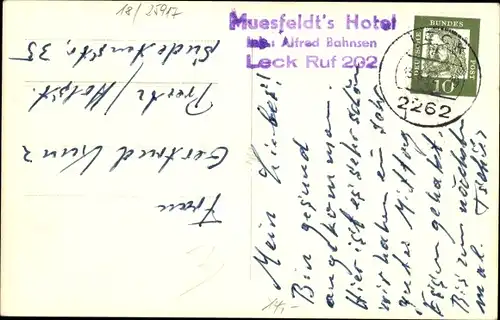 18/25917
Muesfeldt's Hotel
Inh.: Alfred Bahnsen
Leck Ruf 202
DEUTSCHE BUNDESPOST
10
LECK
2262
Frau
Gertrud Kunz
Preetz/Holst.
35
Mein Liebes!
Bin gesund
angekommen.
Hier ist es sehr schön
wir haben ein sehr
gutes Mittag
Essen gehabt.
Bis zum nächsten
mal.